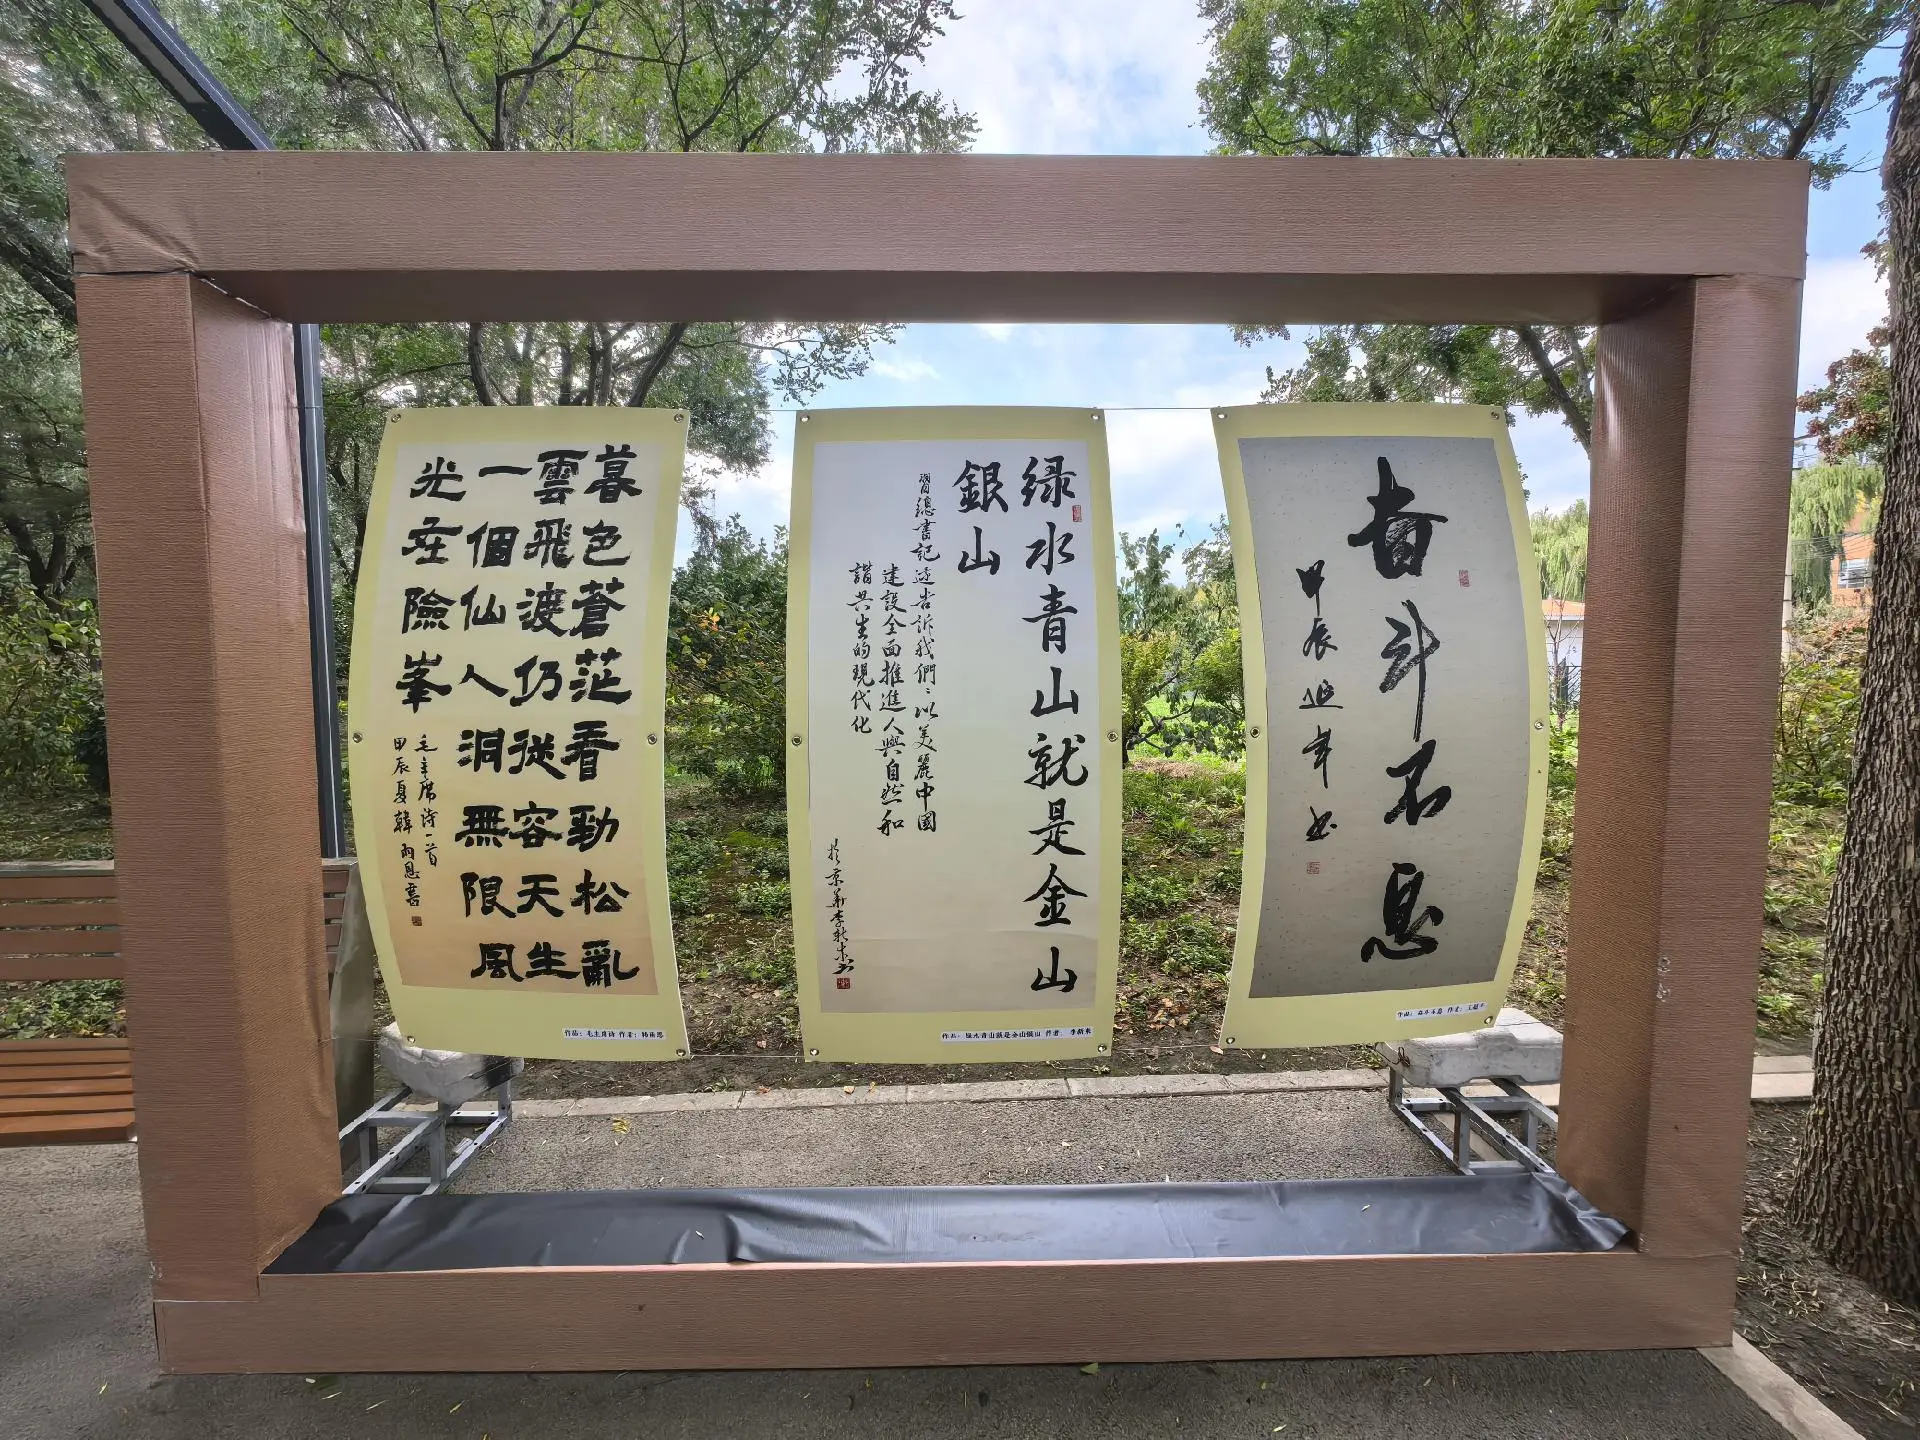 暮色蒼茫看勁松亂
雲飛渡仍從容天生
一個仙人洞無限風
光在險峯
毛主席诗一首
甲辰夏韓雨恩書
作品：毛主席诗 作者：韩雨恩
绿水青山就是金山
銀山
習總書記还告訴我們：以美麗中國
建設全面推進人與自然和
諧共生的現代化
於京華李新来书
作品：绿水青山就是金山银山 作者：李新来
奋斗不息
甲辰 延年书
作品：奋斗不息 作者：王延年